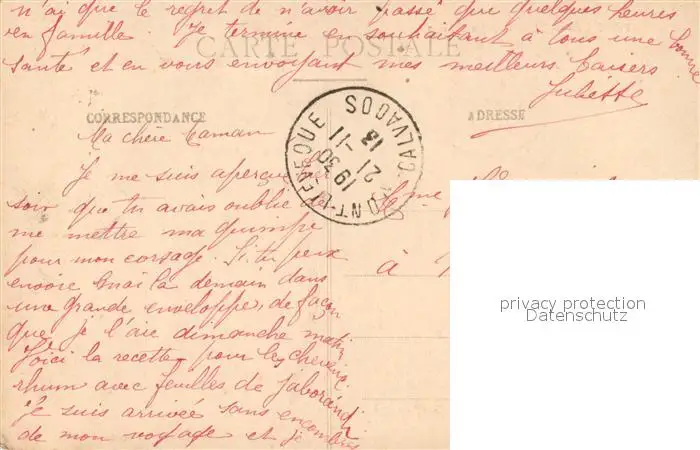 n'ai que le regret de n'avoir passé que quelques heures
en famille. Je termine en souhaitant à tous une bonne
CARTE POSTALE
santé et en vous envoyant mes meilleurs baisers
Juliette
CORRESPONDANCE
ADRESSE
PONT-L'EVEQUE
CALVADOS
19 30
21 - 11
13
Ma chère Maman
Je me suis aperçue le
soir que tu avais oublié de
me mettre ma guimpe
pour mon corsage. Si tu peux
envoie moi la demain dans
une grande enveloppe, de façon
que je l'aie dimanche matin
Voici la recette pour les cheveux:
rhum avec feuilles de jaborandi
Je suis arrivée sans encombres
de mon voyage et je
à
privacy protection
Datenschutz